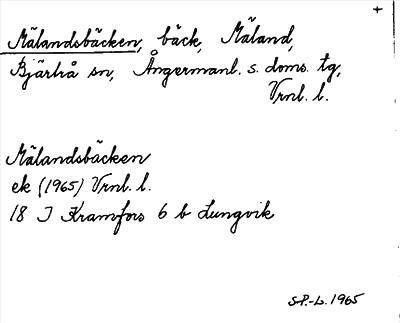 +
Mälandsbäcken, bäck, Mäland,
Bjärtrå sn, Ångermanl. s. doms. tg,
Vrnl. l.
Mälandsbäcken
ek (1965) Vrnl. l.
18 I Kramfors 6 b Lungvik
S.P.-L. 1965